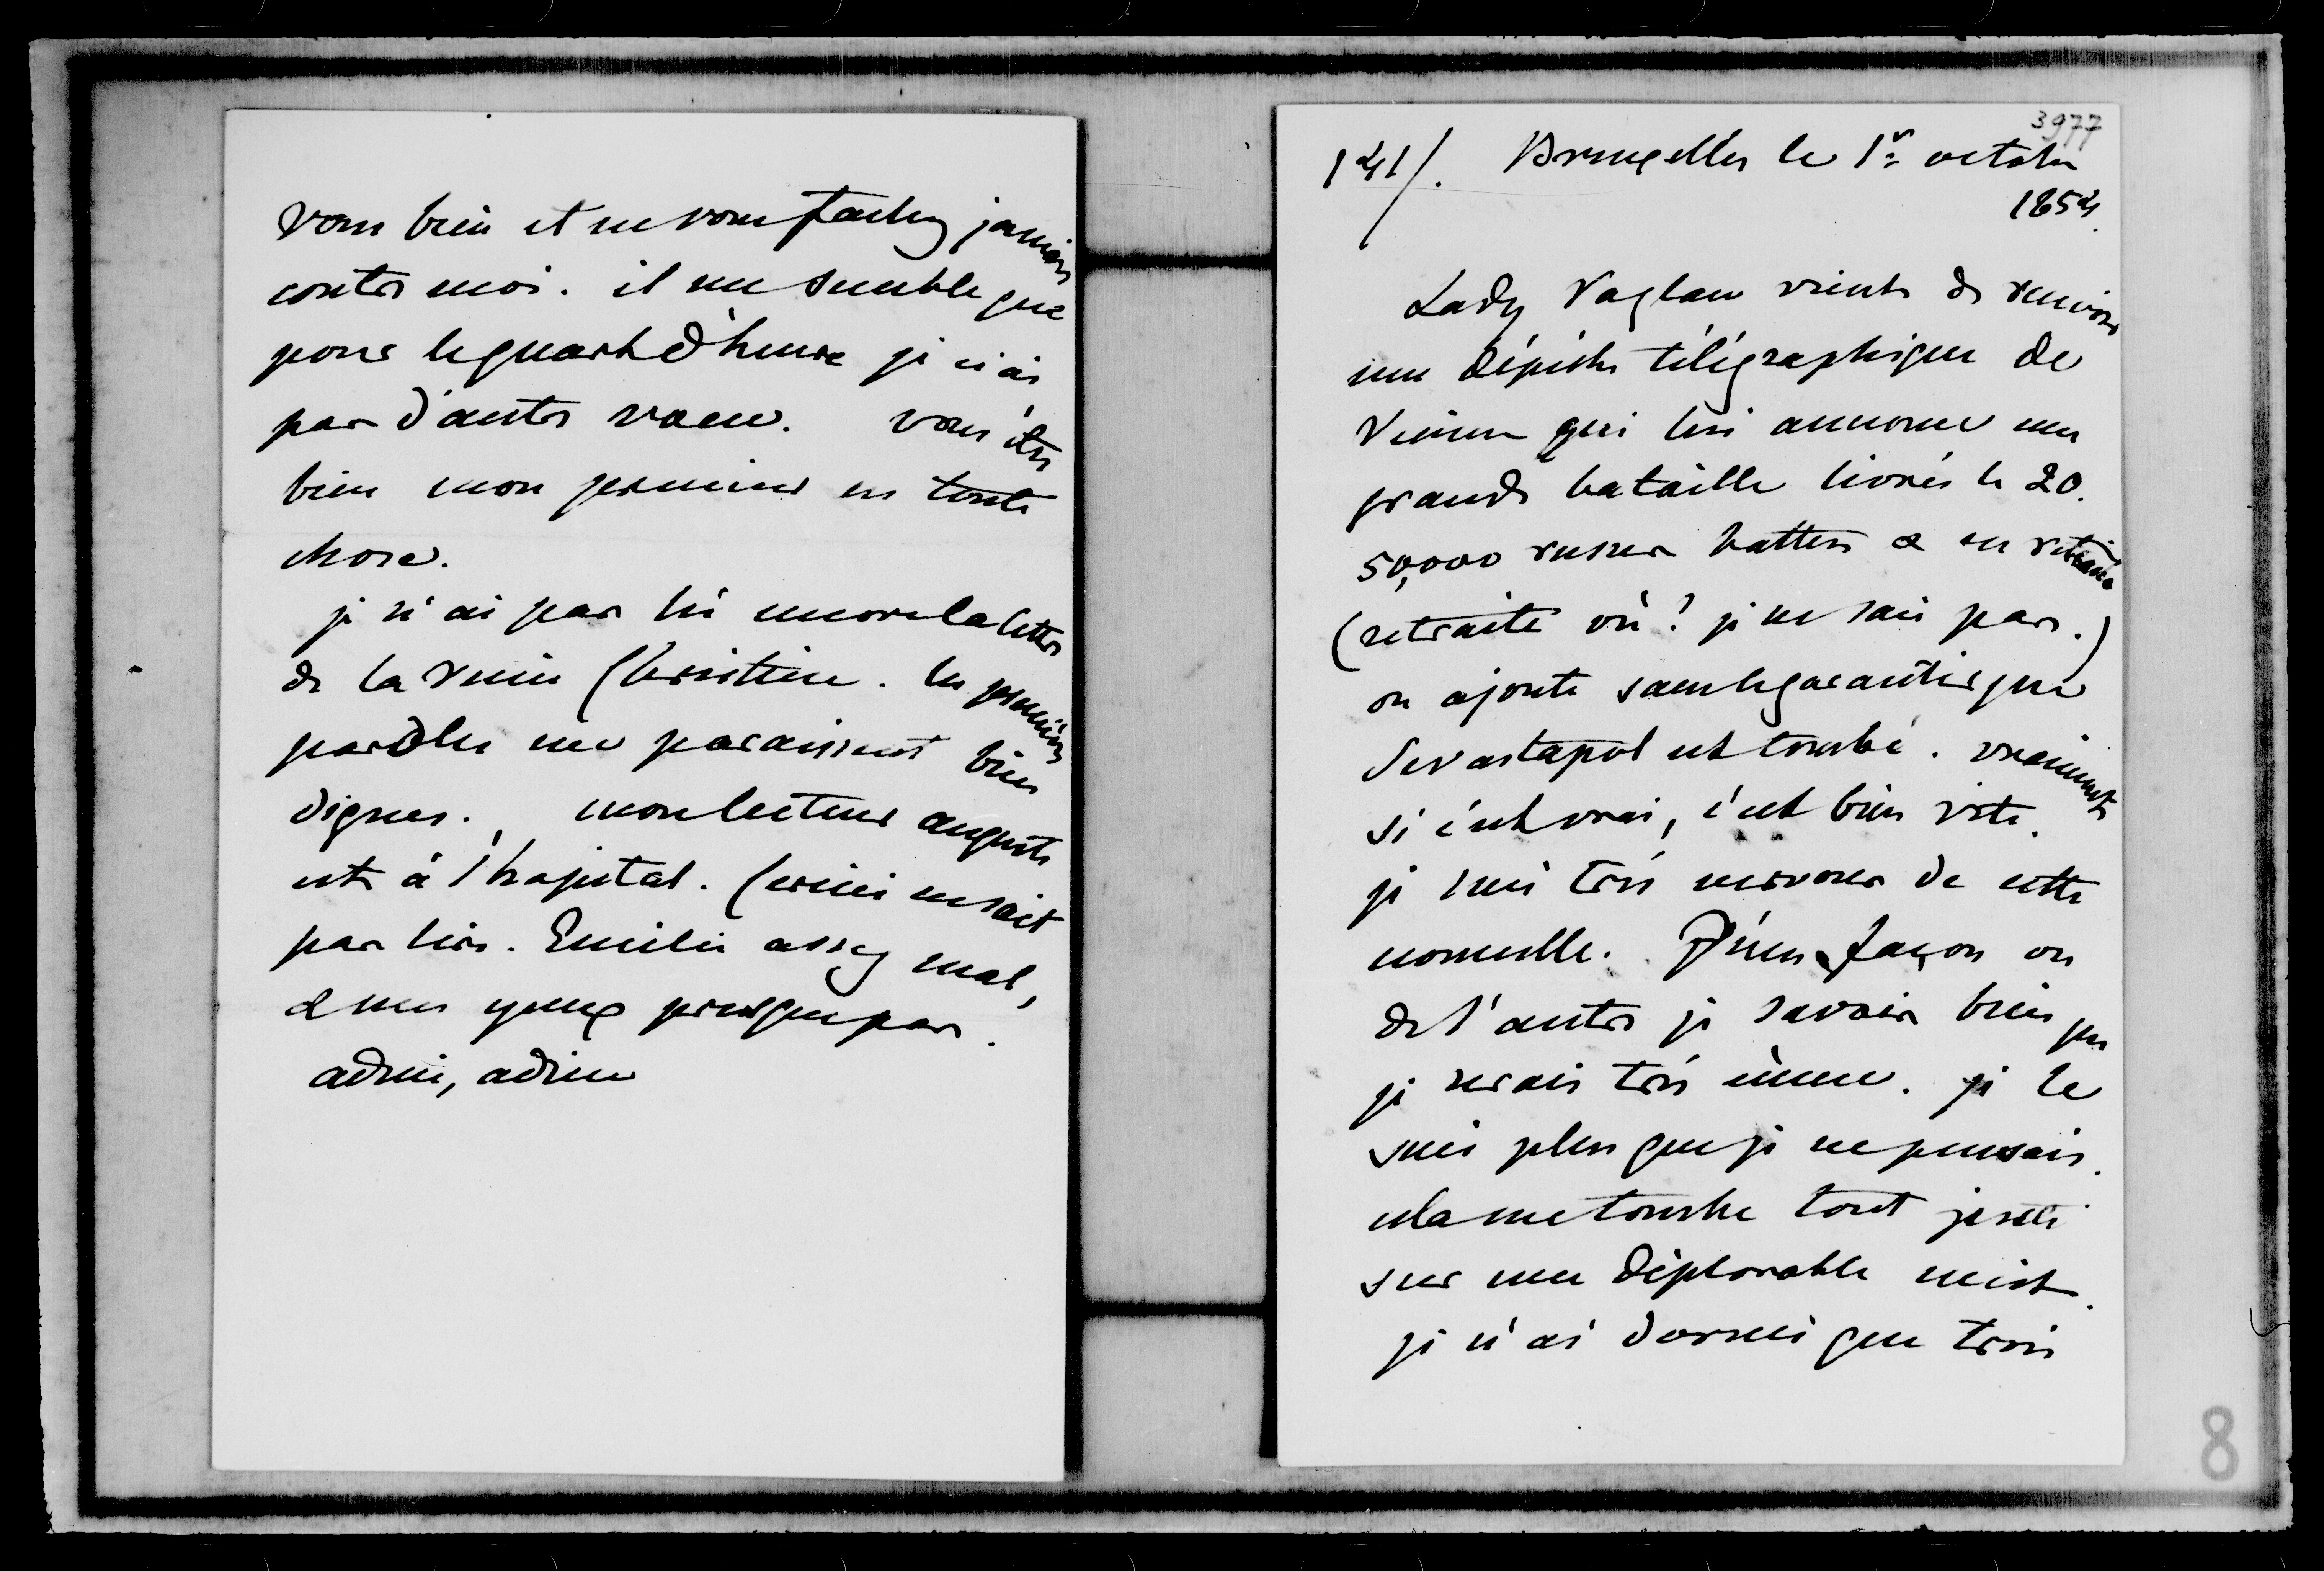 vous bien et ne vous fachez jamais
contre moi. il me semble que
pour le quart d'heure je n'ai
pas d'autre vœu. vous êtes
bien mon premier en toute
chose.
je n'ai pas lu encore la lettre
de la reine Christine. les premières
paroles me paraissent bien
dignes. mon lecteur auguste
est à l'hopital. Cerini ne sait
pas lire. Emilie assez mal,
& mes yeux presque pas.
adieu, adieu
3977
141/. Bruxelles le 1er octobre
1854.
Lady Raglan vient de recevoir
une dépêche télégraphique de
Vienne qui lui annonce une
grande bataille livrée le 20.
50,000 russes battus & en retraite
(retraite où? je ne sais pas.)
on ajoute sans le garantir que
Sevastapol est tombé. vraiment
si c'est vrai, c'est bien vite.
je suis très nervouse de cette
nouvelle. D'une façon ou
de l'autre je savais bien que
je serais très émue. je le
suis plus que je ne pensais.
cela me tombe tout juste
sur une déplorable nuit.
je n'ai dormi que trois
8